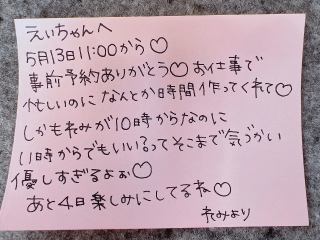 えいちゃんへ
5月13日11:00から♡
事前予約ありがとう♡お仕事で
忙しいのになんとか時間作ってくれて♡
しかもれみが10時からなのに
11時からでもいいるってそこまで気づかい
優しすぎるよぉ♡
あと4日楽しみにしてるね♡
れみより